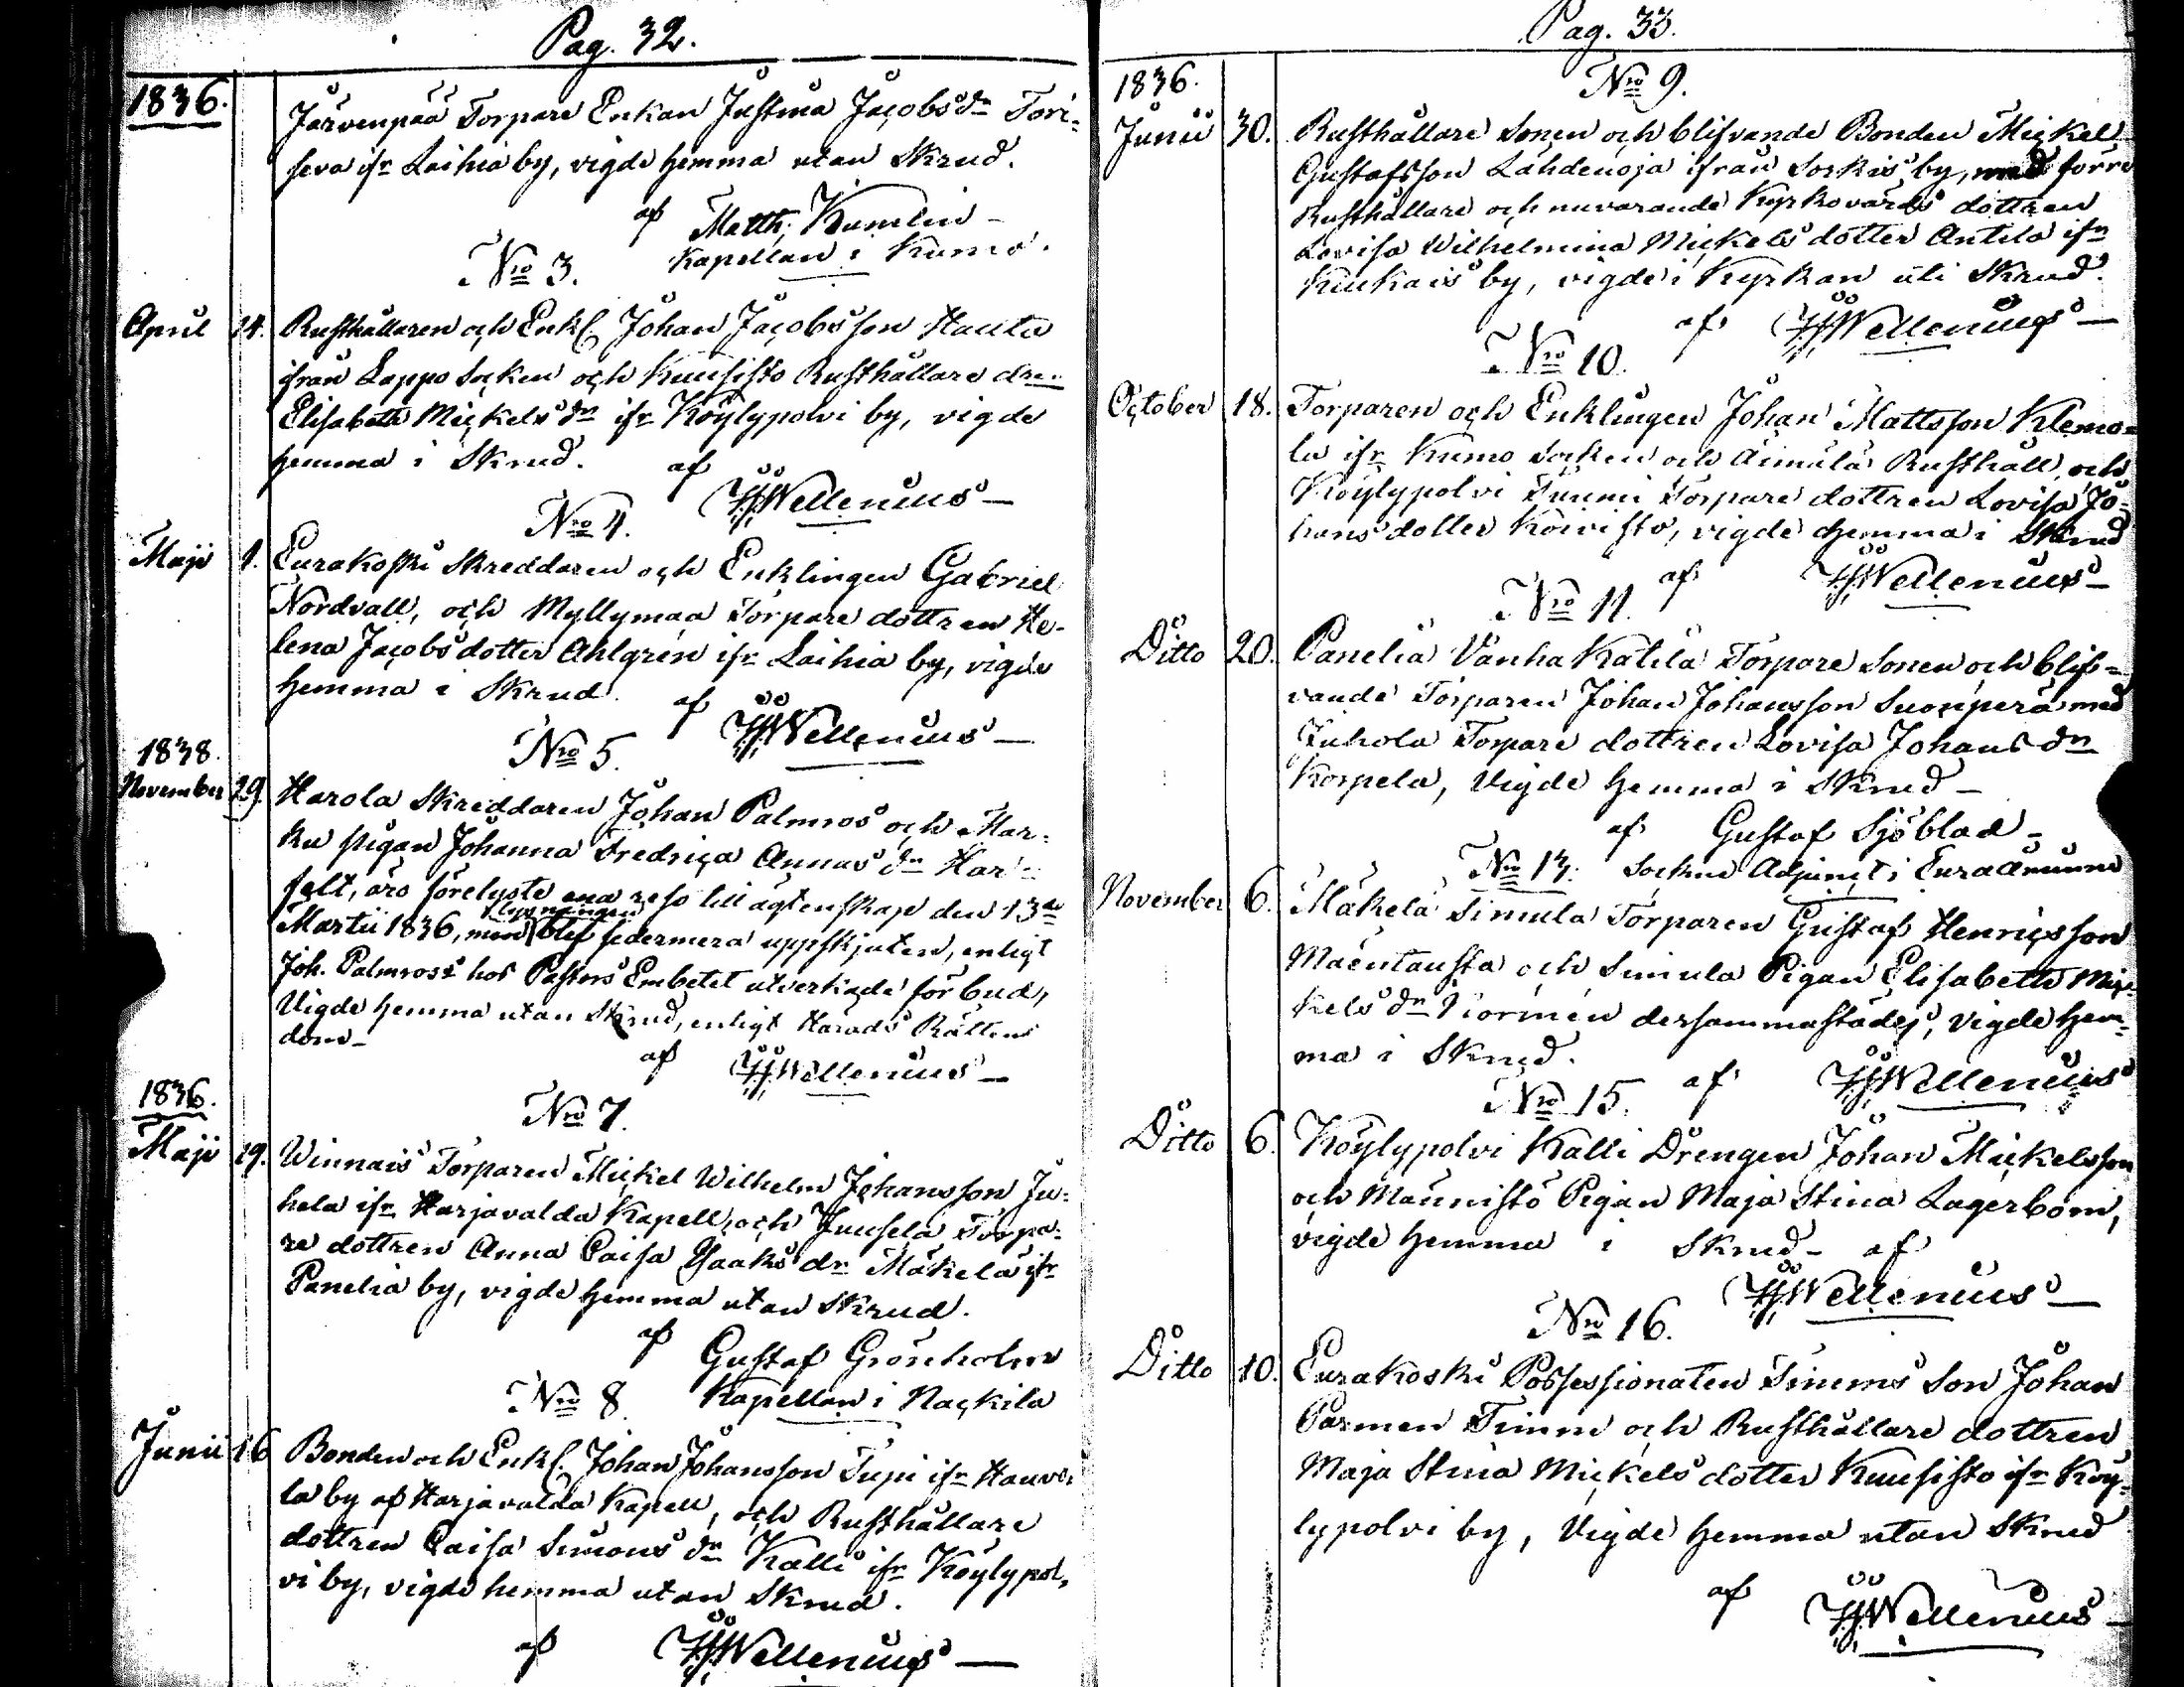 Pag. 32.
1836.
Järvenpää Torpare Enkan Justina Jacobsdr Tori-
seva ifr Laihia by, vigde hemma utan Skrud.
af Matth. Kumlin -
Kapellan i Kumo.
Nro 3.
April 14. Rusthållaren och Enkl. Johan Jacobsson Hauta
ifrån Lappo Socken och Kuusisto Rusthållare dr
Elisabeth Mickelsdr ifr Köylypolvi by, vigde
hemma i Skrud. af
Wellenius -
Nro 4.
Maji 1. Eurakoski Skreddaren och Enklingen Gabriel
Nordvall, och Myllymaa Torpare dottren He-
lena Jacobsdotter Ahlgrén ifr Laihia by, vigde
hemma i Skrud. af
Wellenius -
Nro 5.
1838.
November 29. Harola Skreddaren Johan Palmros och
pigan Johanna Fredrica Annasdr
äro förelyste ena reso till ägtenskap den 13de
lysningen
Martii 1836, men blef sedermera uppskjuten, enligt
Joh. Palmross hos Pastors Embetet utverkade förbud,
Vigde hemma utan Skrud, enligt Härads Rättens
dom -
af Wellenius -
Nro 7.
1836.
Maji 19. Winnais Torparen Mickel Wilhelm Johansson Ju-
hela ifr Harjavalda Kapell, och Juusela Torpa-
re dottren Anna Caisa Isaaksdr Mäkelä ifr
Panelia by, vigde hemma utan Skrud.
af
Gustaf Grönholm
Kapellan i Nackila
Nro 8
Junii 16 Bonden och Enkl. Johan Johansson Tupi ifr
la by af Harjavalda Kapell, och Rusthållare
dottren Caisa Simonsdr Kalli ifr Köylypol-
vi by, vigde hemma utan Skrud.
af Wellenius -
Pag. 33.
1836.
Nro 9.
Junii 30. Rusthållare Sonen och blifvande Bonden Mickel
Gustafsson Lähdenoja ifrån Sorkis by, med förre
Rusthållare och nuvarande Kyrkovärds dottren
Lovisa Wilhelmina Mickelsdotter Antila ifr
Kiukais by, vigde i Kyrkan uti Skrud.
af Wellenius -
Nro 10.
October 18. Torparen och Enklingen Johan Mattsson Klemo-
la ifr Kumo Socken och Äimälä Rusthåll, och
Köylypolvi Torpare dottren Lovisa Jo-
hansdotter Koivisto, vigde hemma i Skrud
af Wellenius -
Nro 11.
Ditto 20. Panelia Vanha Katila Torpare Sonen och blif-
vande Torparen Johan Johansson Suonperä med
Juhola Torpare dottren Lovisa Johansdr
Korpela, Vigde hemma i Skrud -
af Gustaf Sjöblad -
Sockne Adjunct i Euraåminne
Nro 13.
November 6. Mäkelä Simula Torparen Gustaf Henricsson
Mäentausta och Simula Pigan Elisabeth Mic-
kelsdr dersammastädes, Vigde hem-
ma i Skrud.
af Wellenius
Nro 15.
Ditto 6. Köylypolvi Kalli Drengen Johan Mickelsson
och Männistö Pigan Maja Stina Lagerbom,
vigde hemma i Skrud - af
Wellenius -
Nro 16.
Ditto 10. Eurakoski Possessionaten Timms Son Johan
Parmen Timm och Rusthållare dottren
Maja Stina Mickelsdotter Kuusisto ifr Köy-
lypolvi by, Vigde hemma utan Skrud
af Wellenius -